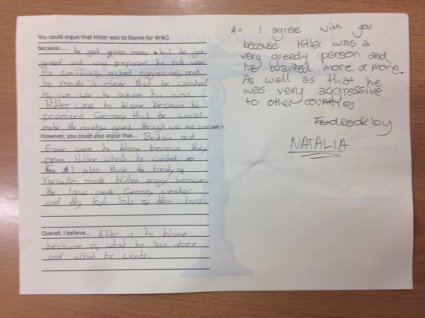 You could argue that Hitler was to blame for WW2
because.... he got given many but he got
greed and was prepared for war.
He continually acted aggressively and
he made it clear that he wanted
to use war to achieve his aims
Hitler was to blame because he
promised Germany that he would
make the country great through war and
However, you could also argue that... Britain and
France were to blame because they
gave Hitler what he wanted
I also think the treaty of
Versailles made Hitler angry because
the laws made Germany weaker
and they lost lots of their land.
Overall, I believe... Hitler is to blame
because of what he has done
and what he
A: I agree with you
because Hitler was a
very greedy person and
he wanted more & more.
As well as that he
was very aggressive
to other countries
Feedback by
NATALIA